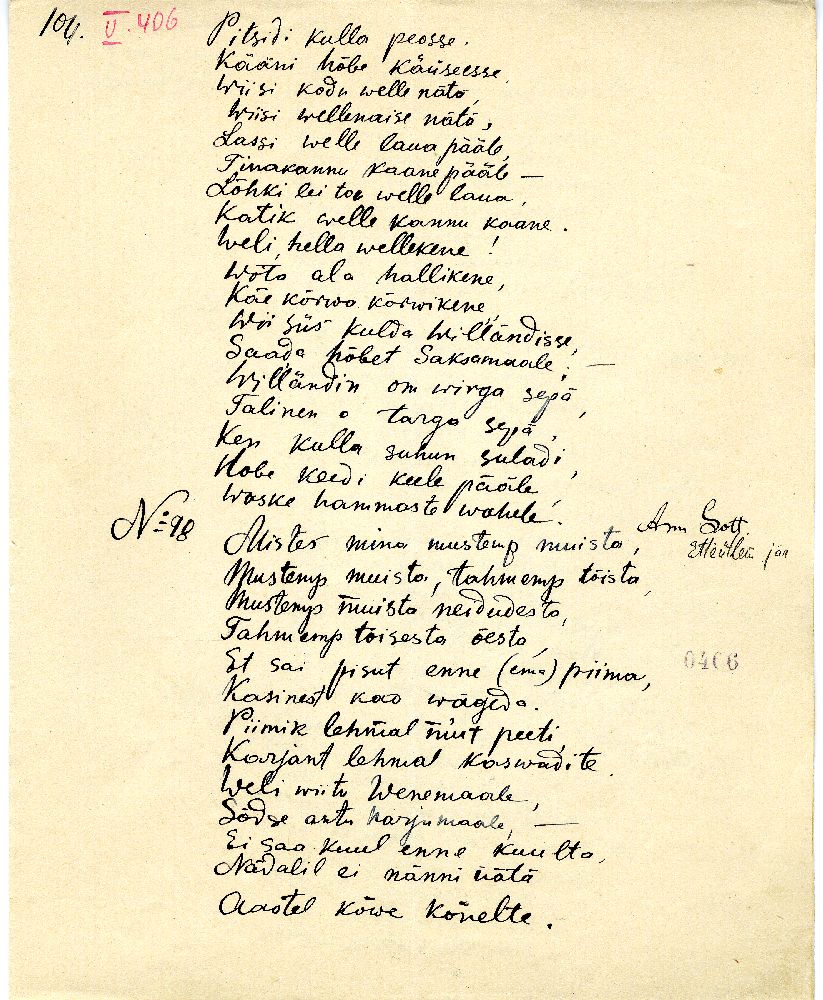 106. II. 406
Pitsidi kulla peosse.
Kääni hõbe käuseesse,
Wiisi kodu welle näta,
Wiisi wellenaise nätä,
Lassi welle laua pääle,
Tinakannu kaane pääle —
Lõhki lei ton welle laua,
Katik welle kannu kaane.
Weli, hella wellekene!
Wõta ala hallikene,
Käe kõrwa kõrwikene,
Wii siis kulda Willändisse,
Saada hõbet Saksamaale; —
Willändin om wirga sepä,
Talinen o targa sepä,
Ken kulla suhun suladi,
Hõbe keedi keele pääle,
Waske hammaste wahele.
№ 98
Mister mina mustemp muista,
Ann Sott,
Mustemp muista, tahmemp tõista,
Mustemp muista neidudesta,
Tahmemp tõisesta õesta,
Et sai pisut enne (ema) piima,
0406
Kasinest kao wägeda.
Piimik lehmal miut peeti,
Karjant lehmal kaswadite
Weli wiiti Wenemaale,
Sõdse anti harjumaale, —
Ei saa kuul enne kuulta,
Nädalil ei nänni nätä
Aastel kõwe kõnelte.